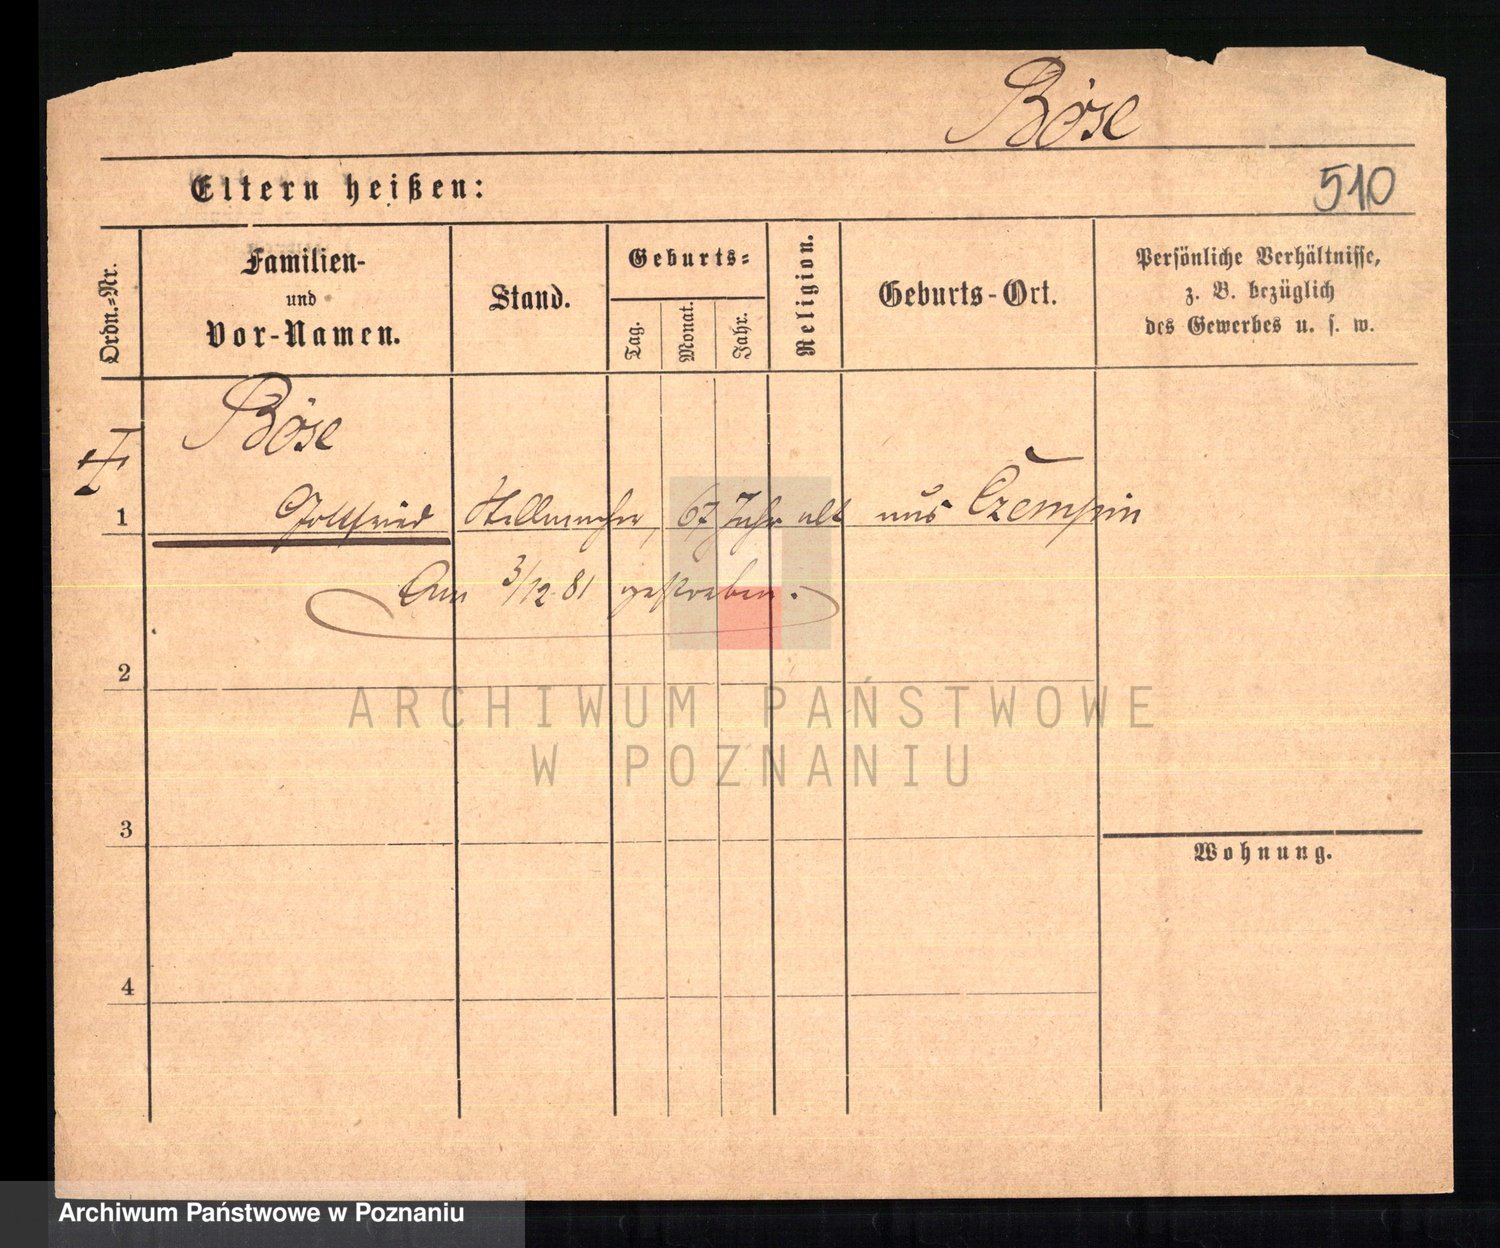 Böse
Eltern heißen:
510
Ordn.-Nr.
Familien-
und
Vor-Namen.
Stand.
Geburts-
Tag.
Monat.
Jahr.
Religion.
Geburts-Ort.
Persönliche Verhältnisse,
z. B. bezüglich
des Gewerbes u. s. w.
Böse
1 Gottfried Stellmacher, 67 Jahr alt aus Czempin
Am 3/12 81 gestorben.
2
ARCHIWUM PAŃSTWOWE
W POZNANIU
3
Wohnung.
4
Archiwum Państwowe w Poznaniu